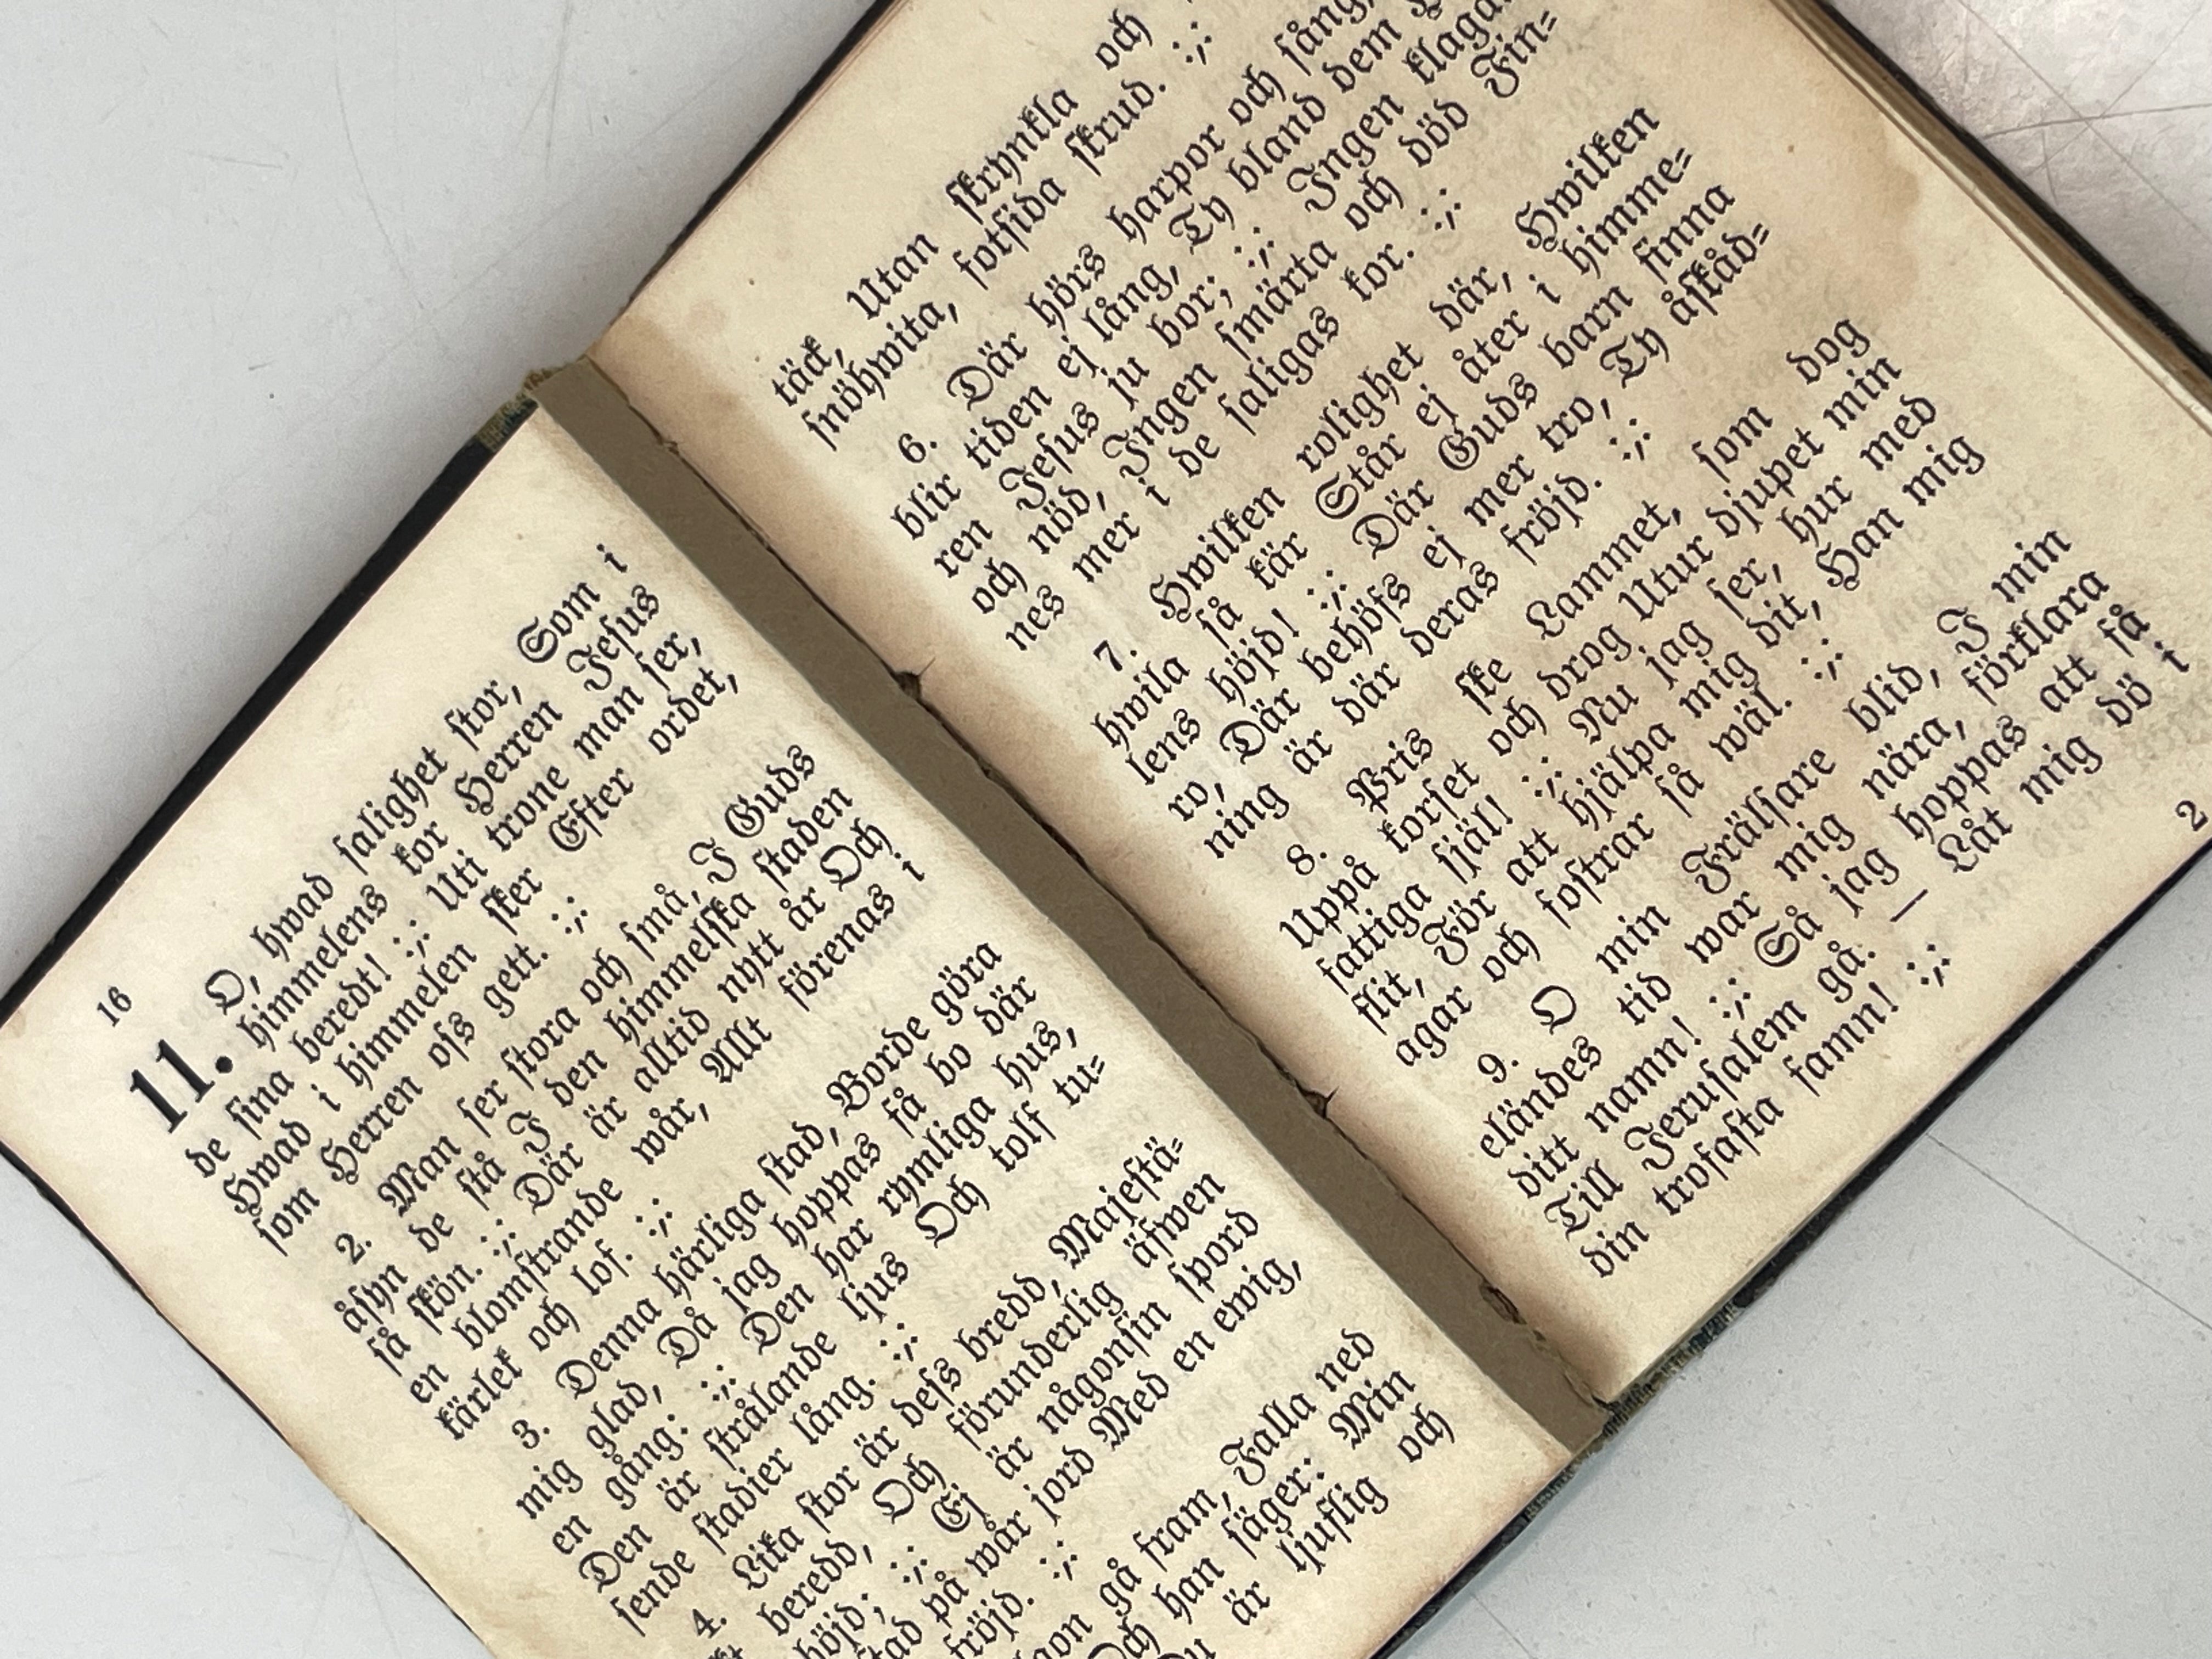 16
11. O, hwad salighet stor, Som i
himmelens kor Herren Jesus
de sina beredt! :,: Uti trone man ser,
Hwad i himmelen sker Efter ordet,
som Herren oss gett. :,:
2. Man ser stora och små, I Guds
åsyn de stå I den himmelska staden
så skön. :,: Där är alltid nytt år Och
en blomstrande wår, Allt förenas i
kärlek och lof. :,:
3. Denna härliga stad, Borde göra
mig glad, Då jag hoppas få bo där
en gång: :,: Den har rymliga hus,
Den är strålande ljus Och tolf tu-
sende stadier lång. :,:
4. Lika stor är dess bredd, Majestä-
beredd, Och förunderlig äfwen
höjd; :,: Ej är någonsin spord
stad på wår jord Med en ewig,
fröjd. :,:
gå fram, Falla ned
Och han säger: Min
Du är ljuflig och
täck, Utan skrynkla och
snöhwita, fotsida skrud. :,:
6. Där hörs harpor och sång,
blir tiden ej lång, Ty bland dem
ren Jesus ju bor; :,: Ingen klagan
och nöd, Ingen smärta och död Fin-
nes mer i de saligas kor. :,:
7. Hwilken rolighet där, Hwilken
hwila så kär Står ej åter i himme-
lens höjd! :,: Där Guds barn finna
ro, Där behöfs ej mer tro, Ty åskåd-
ning är där deras fröjd. :,:
8. Pris ske Lammet, som dog
Uppå korset och drog Utur djupet min
fattiga själ! :,: Nu jag ser, hur med
flit, För att hjälpa mig dit, Han mig
agar och fostrar så wäl. :,:
9. O min Frälsare blid, I min
eländes tid war mig nära, förklara
ditt namn! :,: Så jag hoppas att få
Till Jerusalem gå. — Låt mig dö i
din trofasta famn! :,:
2